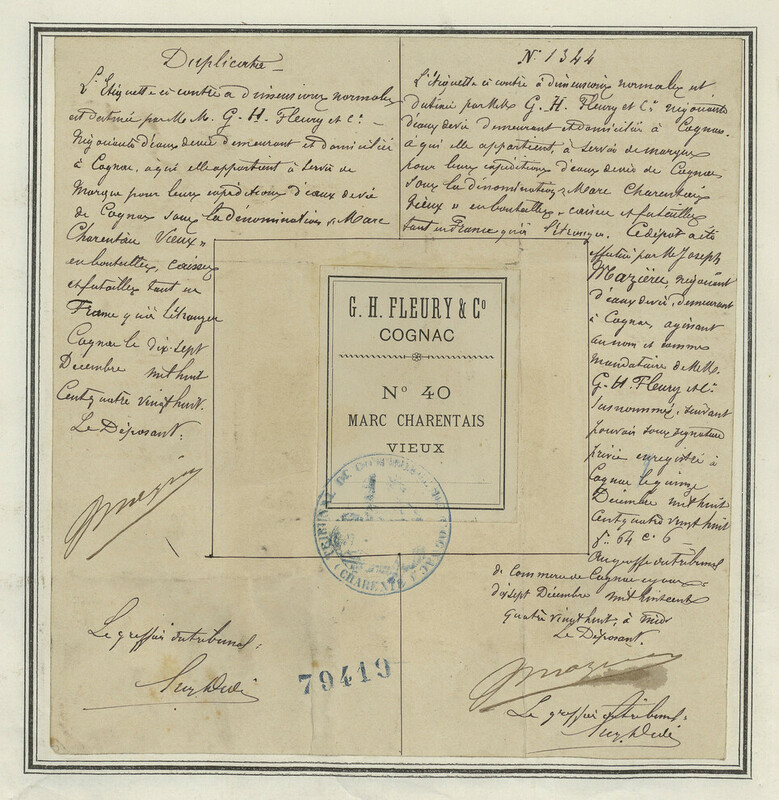 Duplicata
L'Etiquette ci contre a dimensions normales
est destinée par M. M. G. H. Fleury et Cie
Négociants d'eaux de vie demeurant et domiciliés
à Cognac, à qui elle appartient à servir de
Marque pour leurs expéditions d'eaux de vie
de Cognac sous la dénomination "Marc
Charentais Vieux"
en bouteilles, caisses
et futailles tant en
France qu'à l'étranger
Cognac le dix-sept
Décembre mil huit
Cent quatre vingt huit.
Le Déposant:
Le greffier du tribunal:
N° 1344
L'étiquette ci contre à dimensions normales est
destinée par M.M. G. H. Fleury et Cie négociants
d'eaux de vie demeurant et domiciliés à Cognac,
à qui elle appartient, à servir de marque
pour leurs expéditions d'eaux de vie de Cognac
sous la dénomination "Marc Charentais
Vieux" en bouteilles, caisses et futailles
tant en France qu'à l'étranger. Ce dépôt a été
effectué par M. Joseph
Mazière, négociant
d'eaux de vie, demeurant
à Cognac, agissant
au nom et comme
mandataire de M.M.
G. H. Fleury et Cie
susnommés, suivant
pouvoir sous signature
privée enregistré à
Cognac le quinze
Décembre mil huit
Cent quatre vingt huit
f° 64 c° 6
Au greffe du tribunal
de Commerce de Cognac ce jour
dix sept Décembre mil huit cent
quatre vingt huit, à midi
Le Déposant.
Le greffier du tribunal:
G. H. FLEURY & Co
COGNAC
No 40
MARC CHARENTAIS
VIEUX
TRIBUNAL DE COMMERCE COGNAC
(CHARENTE)
79419